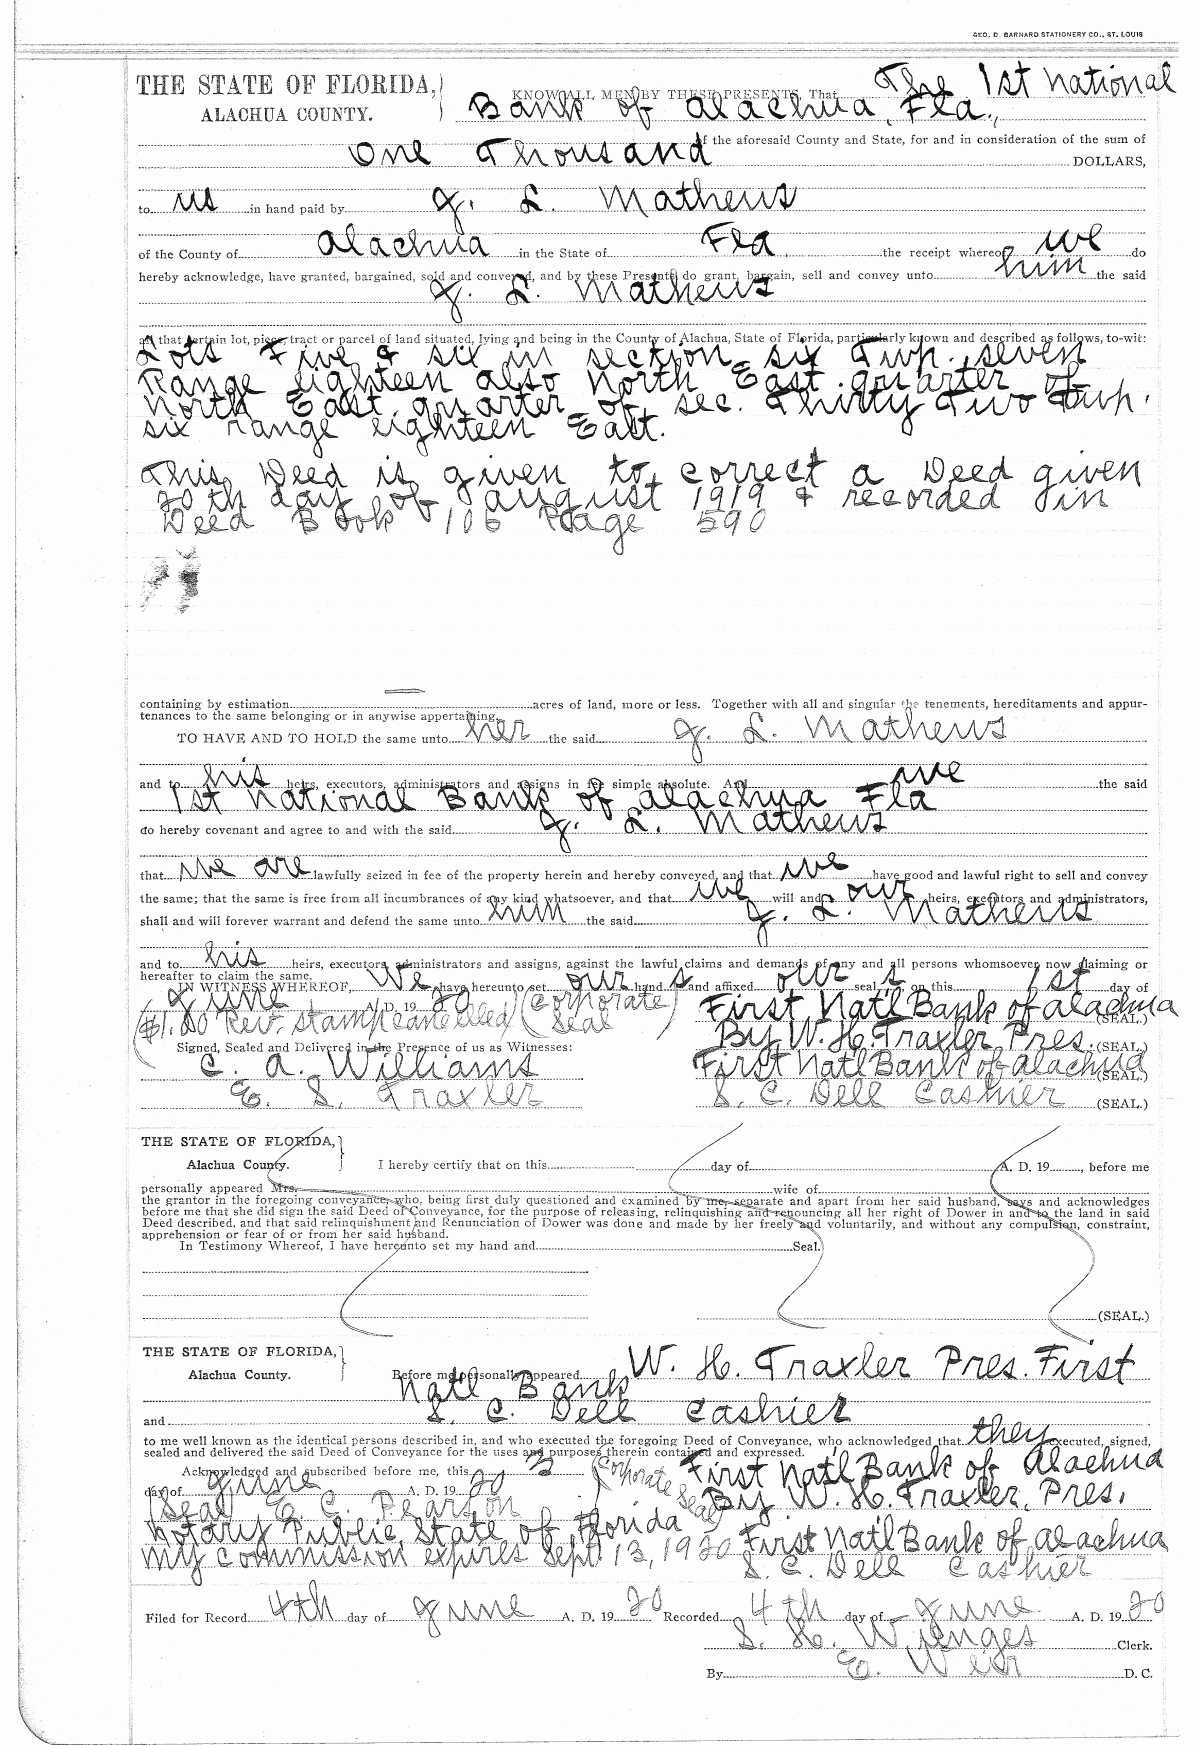 GEO. D. BARNARD STATIONERY CO., ST. LOUIS
THE STATE OF FLORIDA, KNOW ALL MEN BY THESE PRESENTS, That The 1st National
ALACHUA COUNTY. Bank of Alachua, Fla.,
of the aforesaid County and State, for and in consideration of the sum of
One Thousand DOLLARS,
to us in hand paid by J. L. Mathews
of the County of Alachua in the State of Fla the receipt whereof we do
hereby acknowledge, have granted, bargained, sold and conveyed, and by these Presents do grant, bargain, sell and convey unto him the said
J. L. Mathews
all that certain lot, piece, tract or parcel of land situated, lying and being in the County of Alachua, State of Florida, particularly known and described as follows, to-wit:
Lots Five & six in section six Twp. seven
Range eighteen also North East quarter of
North East quarter of sec. Thirty Two Twp.
six range eighteen East.
This Deed is given to correct a Deed given
20th day of August 1919 & recorded in
Deed Book 106 Page 590
containing by estimation acres of land, more or less. Together with all and singular the tenements, hereditaments and appur-
tenances to the same belonging or in anywise appertaining.
TO HAVE AND TO HOLD the same unto her the said J. L. Mathews
and to his heirs, executors, administrators and assigns in fee simple absolute. And we the said
1st National Bank of Alachua Fla
do hereby covenant and agree to and with the said J. L. Mathews
that we are lawfully seized in fee of the property herein and hereby conveyed, and that we have good and lawful right to sell and convey
the same; that the same is free from all incumbrances of any kind whatsoever, and that we will and our heirs, executors and administrators,
shall and will forever warrant and defend the same unto him the said J. L. Mathews
and to his heirs, executors, administrators and assigns, against the lawful claims and demands of any and all persons whomsoever now claiming or
hereafter to claim the same.
IN WITNESS WHEREOF, We have hereunto set our hand s and affixed our seal s on this 1st day of
June A. D. 19 20 (Corporate First Nat'l Bank of Alachua (SEAL.)
($1.00 Rev. stamp cancelled) Seal By W. H. Traxler Pres. (SEAL.)
Signed, Sealed and Delivered in the Presence of us as Witnesses:
C. A. Williams First Nat'l Bank of Alachua (SEAL.)
E. S. Traxler S. C. Dell Cashier (SEAL.)
THE STATE OF FLORIDA,
Alachua County. I hereby certify that on this day of A. D. 19 , before me
personally appeared Mrs. wife of
the grantor in the foregoing conveyance, who, being first duly questioned and examined by me, separate and apart from her said husband, says and acknowledges
before me that she did sign the said Deed of Conveyance, for the purpose of releasing, relinquishing and renouncing all her right of Dower in and to the land in said
Deed described, and that said relinquishment and Renunciation of Dower was done and made by her freely and voluntarily, and without any compulsion, constraint,
apprehension or fear of or from her said husband.
In Testimony Whereof, I have hereunto set my hand and Seal.
(SEAL.)
THE STATE OF FLORIDA,
Alachua County. Before me personally appeared W. H. Traxler Pres. First
Nat'l Bank
and S. C. Dell Cashier
to me well known as the identical persons described in, and who executed the foregoing Deed of Conveyance, who acknowledged that they executed, signed,
sealed and delivered the said Deed of Conveyance for the uses and purposes therein contained and expressed.
Acknowledged and subscribed before me, this 3 (Corporate Seal) First Nat'l Bank of Alachua
day of June A. D. 19 20 By W. H. Traxler, Pres.
(Seal E. C. Pearson
Notary Public, State of Florida
My commission expires Sept 13, 1920 First Nat'l Bank of Alachua
S. C. Dell Cashier
Filed for Record 4th day of June A. D. 19 20 Recorded 4th day of June A. D. 19 20
S. H. Wienges Clerk.
By E. Weir D. C.